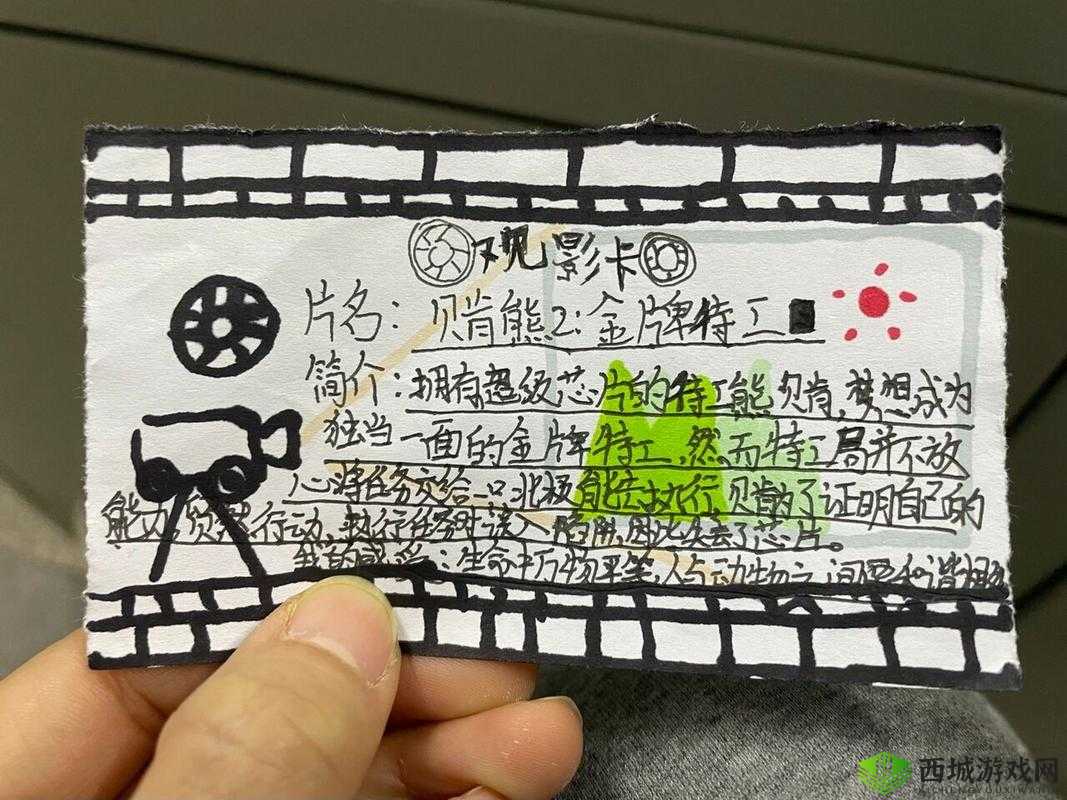 观影卡
片名：贝肯熊2:金牌特工
简介：拥有超级芯片的特工熊贝肯，梦想成为
独当一面的金牌特工，然而特工局并不放
心将任务交给一只北极熊去执行，贝肯为了证明自己的
能力，贸然行动，执行任务时误入陷阱，因此失去了芯片。
我的感受：生命中万物平等，人与动物之间要和谐相处
西城游戏网
XICHENGYOUXIWANG